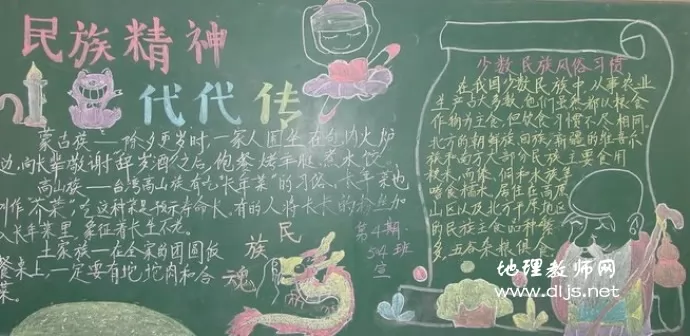 民族精神
代代传
蒙古族——除夕更岁时,一家人围坐在包内火炉
边,向长辈敬谢辞岁酒之后,饱餐烤羊腿、煮水饺。
高山族——台湾高山族有吃“长年菜”的习俗。长年菜也
叫作“芥菜”吃这种菜是预示寿命长,有的人将长长的粉丝加
入长年菜里,象征着长生不老。
土家族——在全家的团圆饭
餐桌上,一定要有坨坨肉和合
菜。
民族魂
第4期
54班
宣
少数民族风俗习惯
在我国少数民族中,从事农业
生产占大多数,他们虽然都以粮食
作物为主食,但饮食习惯不尽相同。
北方的朝鲜族回族新疆的维吾尔
族和南方大部分民族主要食用
秫米,而傣、侗和水族等
嗜食糯米,居住在高原
山区以及北方平原地区
的民族主食的品种繁
多,五谷杂粮俱食
地理教师网
www.dljs.net